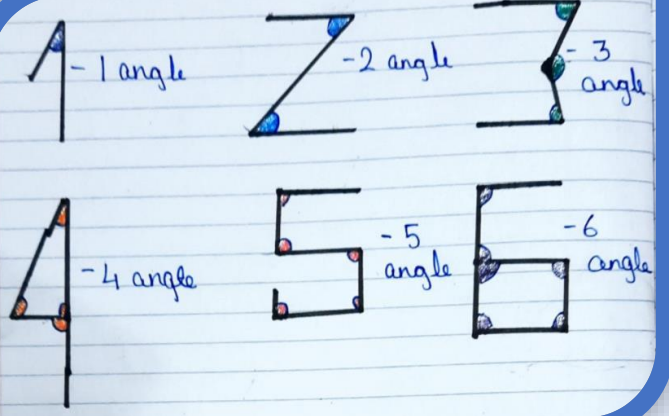 1 - 1 angle
2 - 2 angle
3 - 3
angle
4 - 4 angle
5 - 5
angle
6 - 6
angle